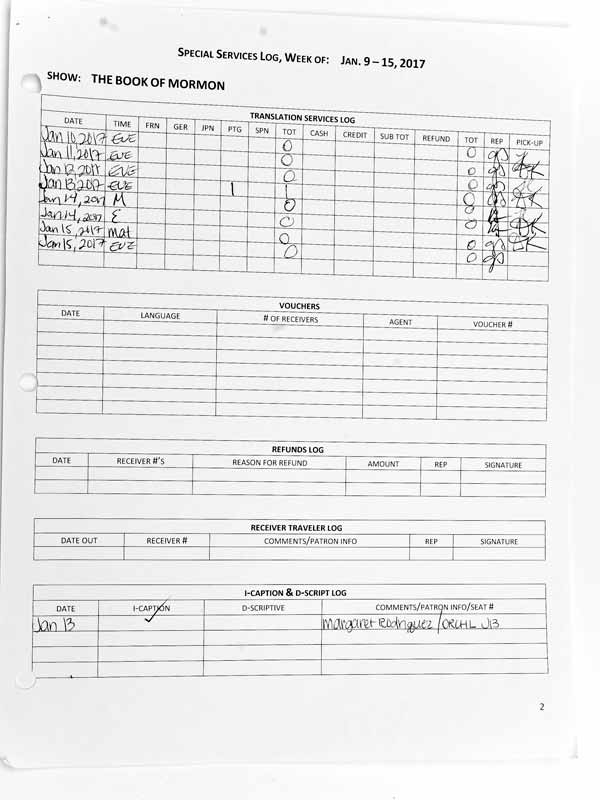 SPECIAL SERVICES LOG, WEEK OF: JAN. 9 – 15, 2017
SHOW: THE BOOK OF MORMON
TRANSLATION SERVICES LOG
DATE TIME FRN GER JPN PTG SPN TOT CASH CREDIT SUB TOT REFUND TOT REP PICK-UP
Jan 10, 2017 EVE 0 0
Jan 11, 2017 EVE 0 0
Jan 12, 2017 EVE 0 0
Jan 13, 2017 EVE 1 1 0
Jan 14, 2017 M 0 0
Jan 14, 2017 E 0 0
Jan 15, 2017 mat 0 0
Jan 15, 2017 EVE 0 0
VOUCHERS
DATE LANGUAGE # OF RECEIVERS AGENT VOUCHER #
REFUNDS LOG
DATE RECEIVER #'S REASON FOR REFUND AMOUNT REP SIGNATURE
RECEIVER TRAVELER LOG
DATE OUT RECEIVER # COMMENTS/PATRON INFO REP SIGNATURE
I-CAPTION & D-SCRIPT LOG
DATE I-CAPTION D-SCRIPTIVE COMMENTS/PATRON INFO/SEAT #
Jan 13 ✓ Margaret Rodriguez / ORCHL J13
2